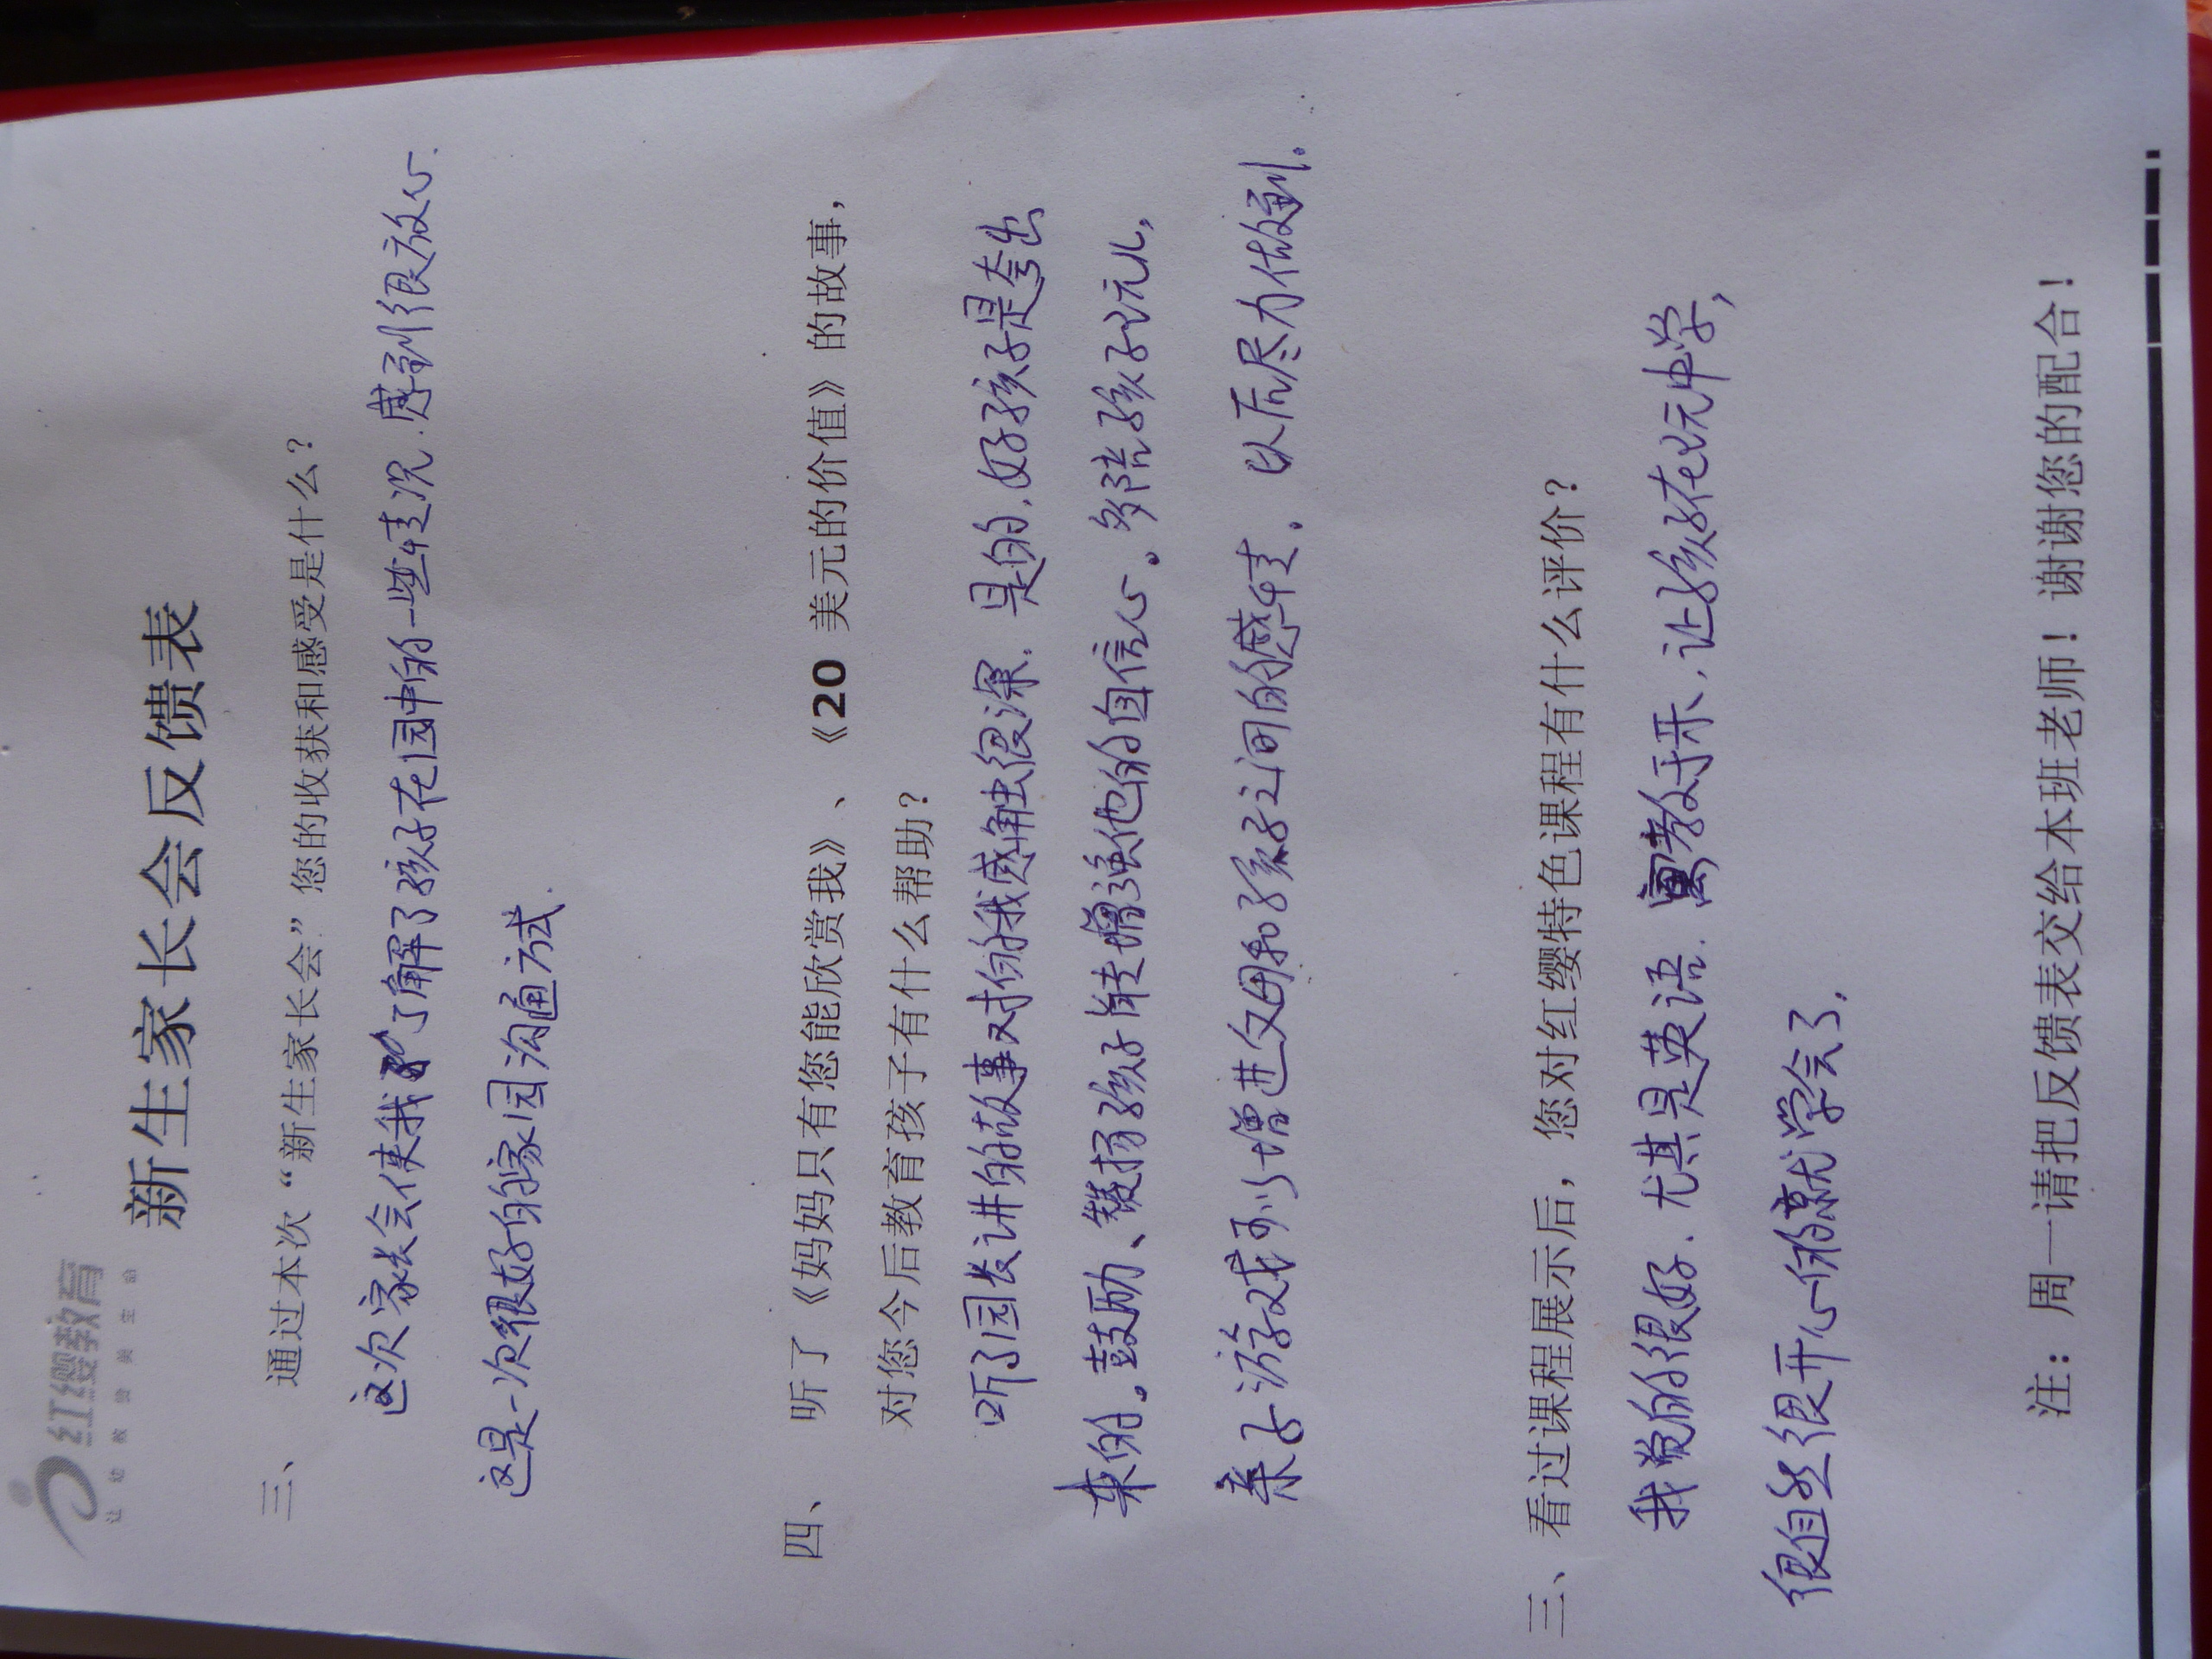 红缨教育
让幼教营养生命
新生家长会反馈表
三、 通过本次“新生家长会”您的收获和感受是什么？
这次家长会使我了解了孩子在园中的一些情况.感到很放心.
这是一次很好的家园沟通方式.
四、 听了《妈妈只有您能欣赏我》、《20 美元的价值》的故事，
对您今后教育孩子有什么帮助？
听了园长讲的故事对的我感触很深. 是的.好孩子是夸出
来的。鼓励、赞扬孩子能增强他的自信心。多陪孩子玩儿,
亲子游戏可以增进父母和孩子之间的感情. 以后尽力做到.
三、看过课程展示后，您对红缨特色课程有什么评价？
我觉的很好. 尤其是英语. 寓教于乐.让孩子在玩中学,
很自然很开心的就学会了.
注：周一请把反馈表交给本班老师！谢谢您的配合！